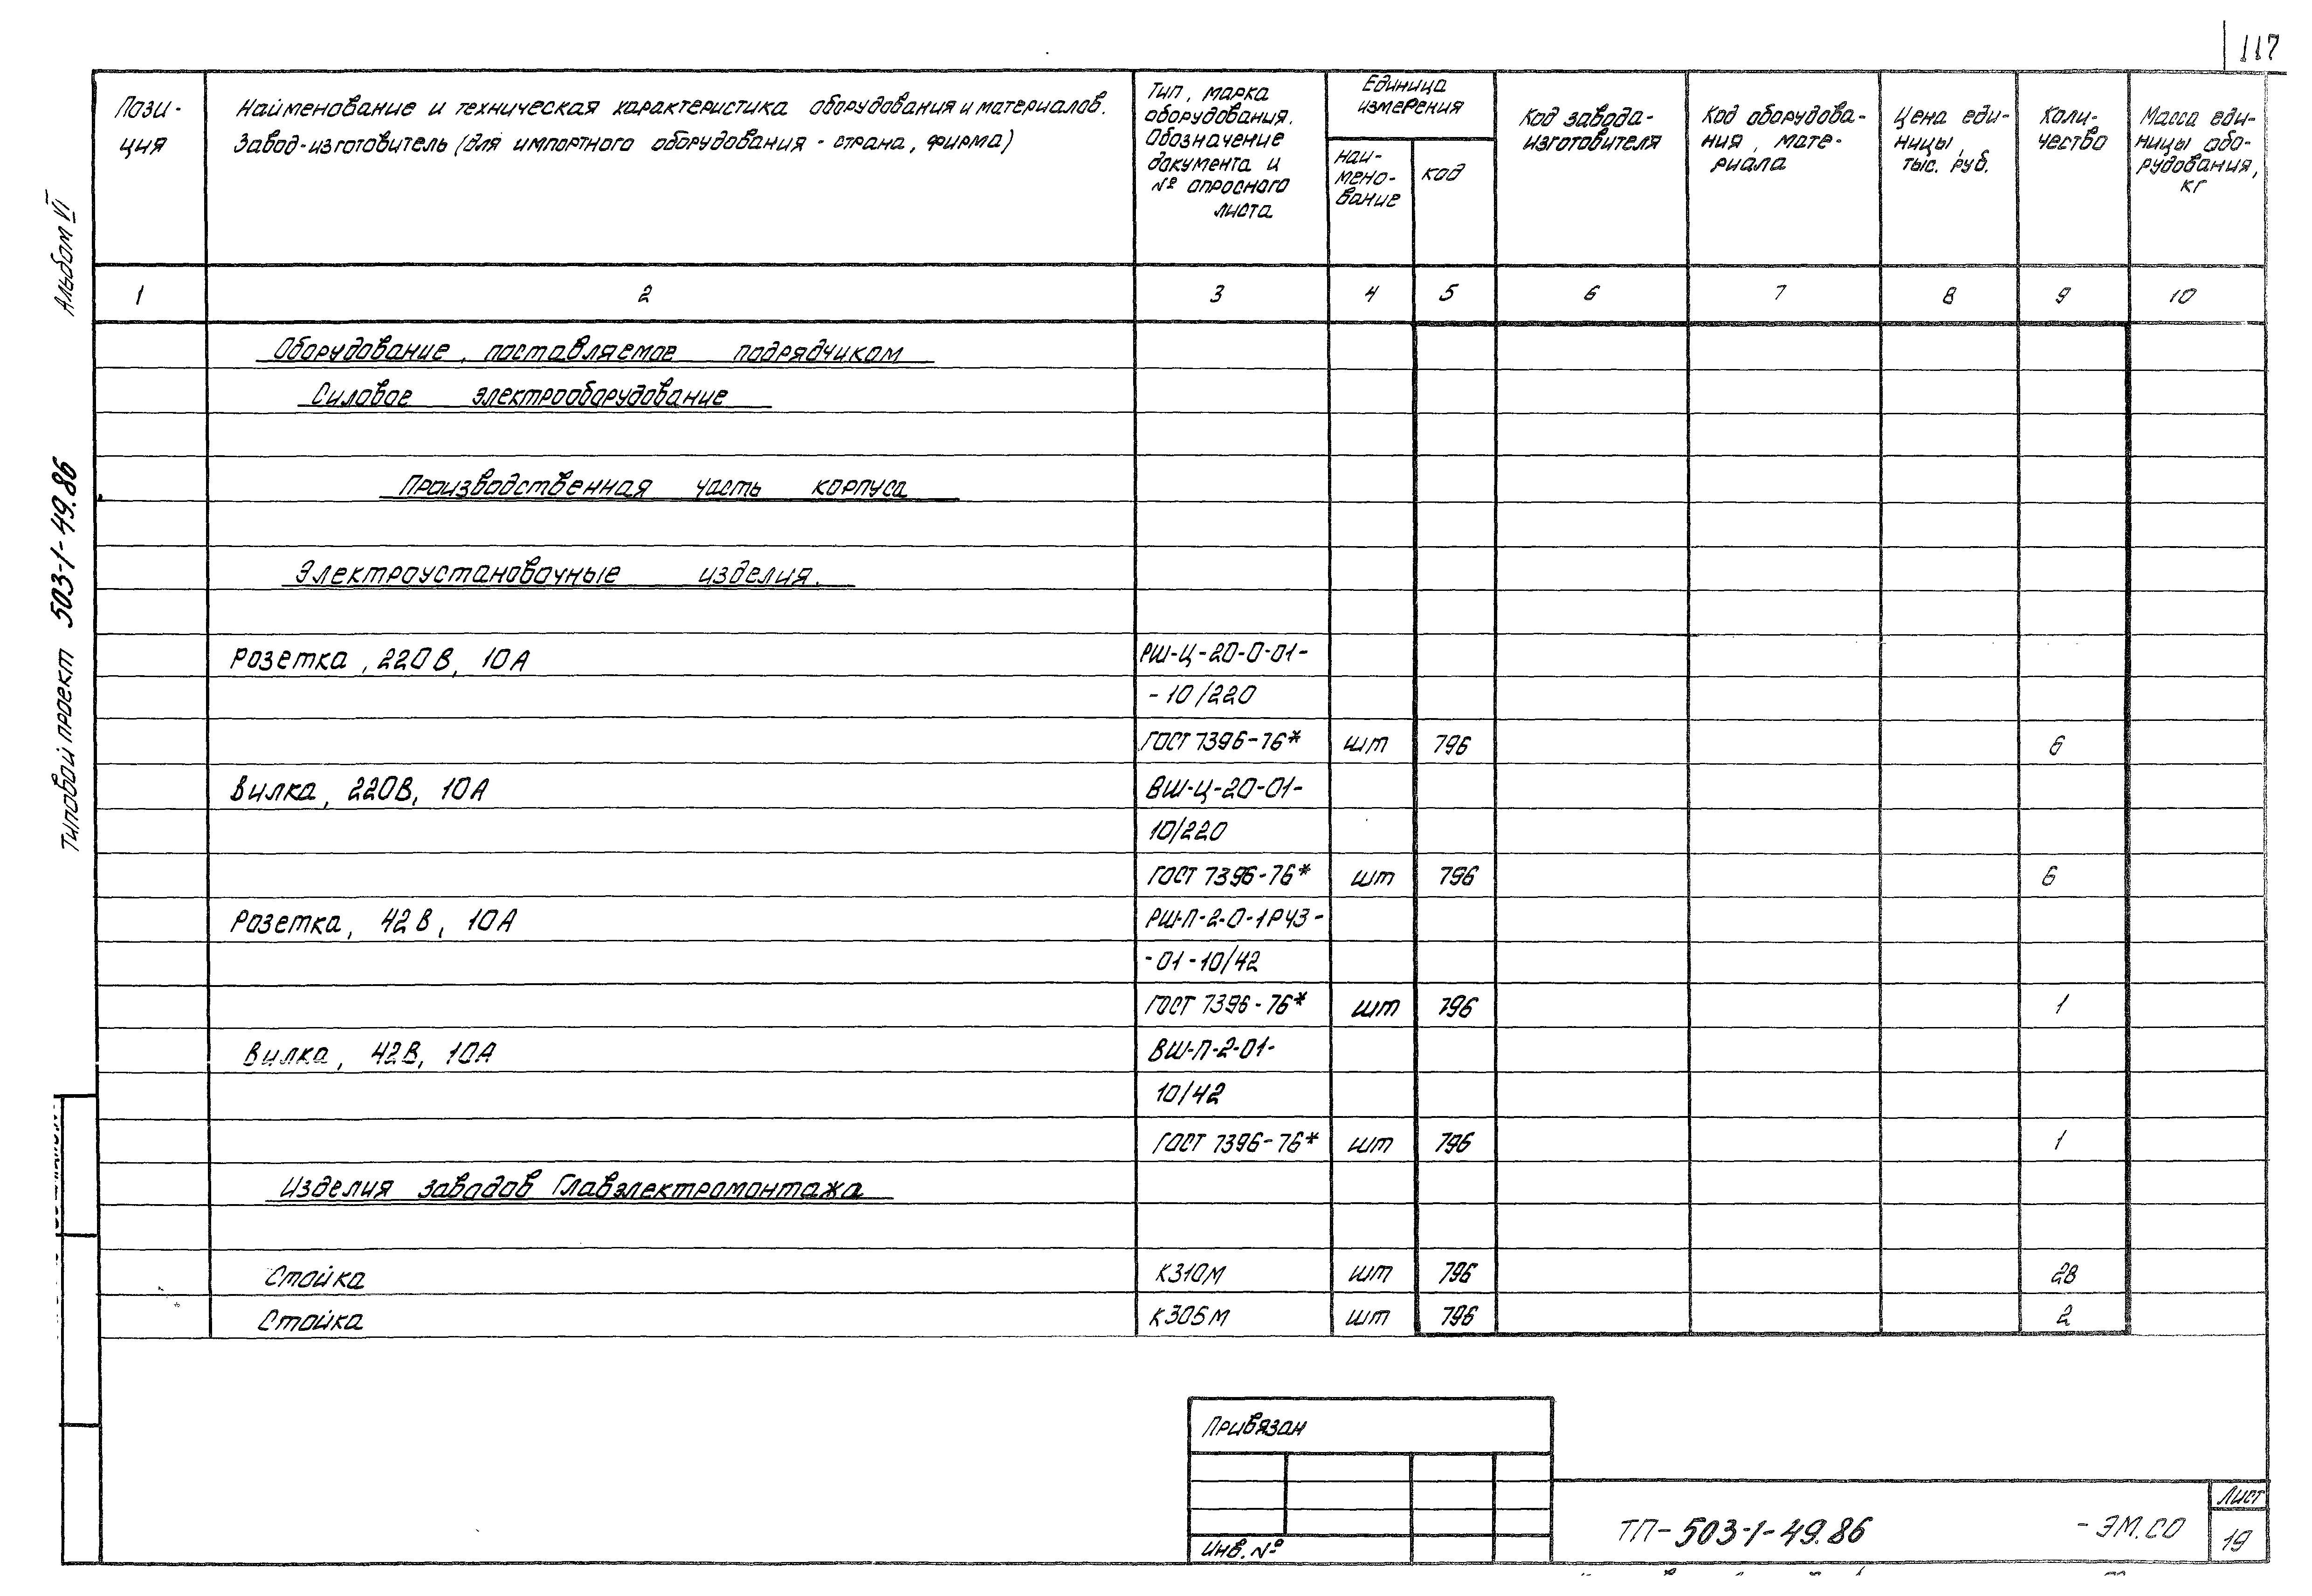 117
Альбом VI
Типовой проект 503-1-49.86
Пози-
ция
Наименование и техническая характеристика оборудования и материалов.
Завод-изготовитель (для импортного оборудования - страна, фирма)
Тип, марка
оборудования.
Обозначение
документа и
№ опросного
листа
Единица
измерения
наи-
мено-
вание
код
Код завода-
изготовителя
Код оборудова-
ния, мате-
риала
Цена еди-
ницы,
тыс. руб.
Коли-
чество
Масса еди-
ницы обо-
рудования,
кг
1 2 3 4 5 6 7 8 9 10
Оборудование, поставляемое подрядчиком
Силовое электрооборудование
Производственная часть корпуса
Электроустановочные изделия.
Розетка, 220В, 10А РШ-Ц-20-0-01-
-10/220
ГОСТ 7396-76* шт 796 6
Вилка, 220В, 10А ВШ-Ц-20-01-
10/220
ГОСТ 7396-76* шт 796 6
Розетка, 42В, 10А РШ-П-2-0-1РУЗ-
-01-10/42
ГОСТ 7396-76* шт 796 1
Вилка, 42В, 10А ВШ-П-2-01-
10/42
ГОСТ 7396-76* шт 796 1
Изделия заводов Главэлектромонтажа
Стойка К310М шт 796 28
Стойка К305М шт 796 2
Привязан
Инв. №
ТП-503-1-49.86 -ЭМ.СО
Лист
19